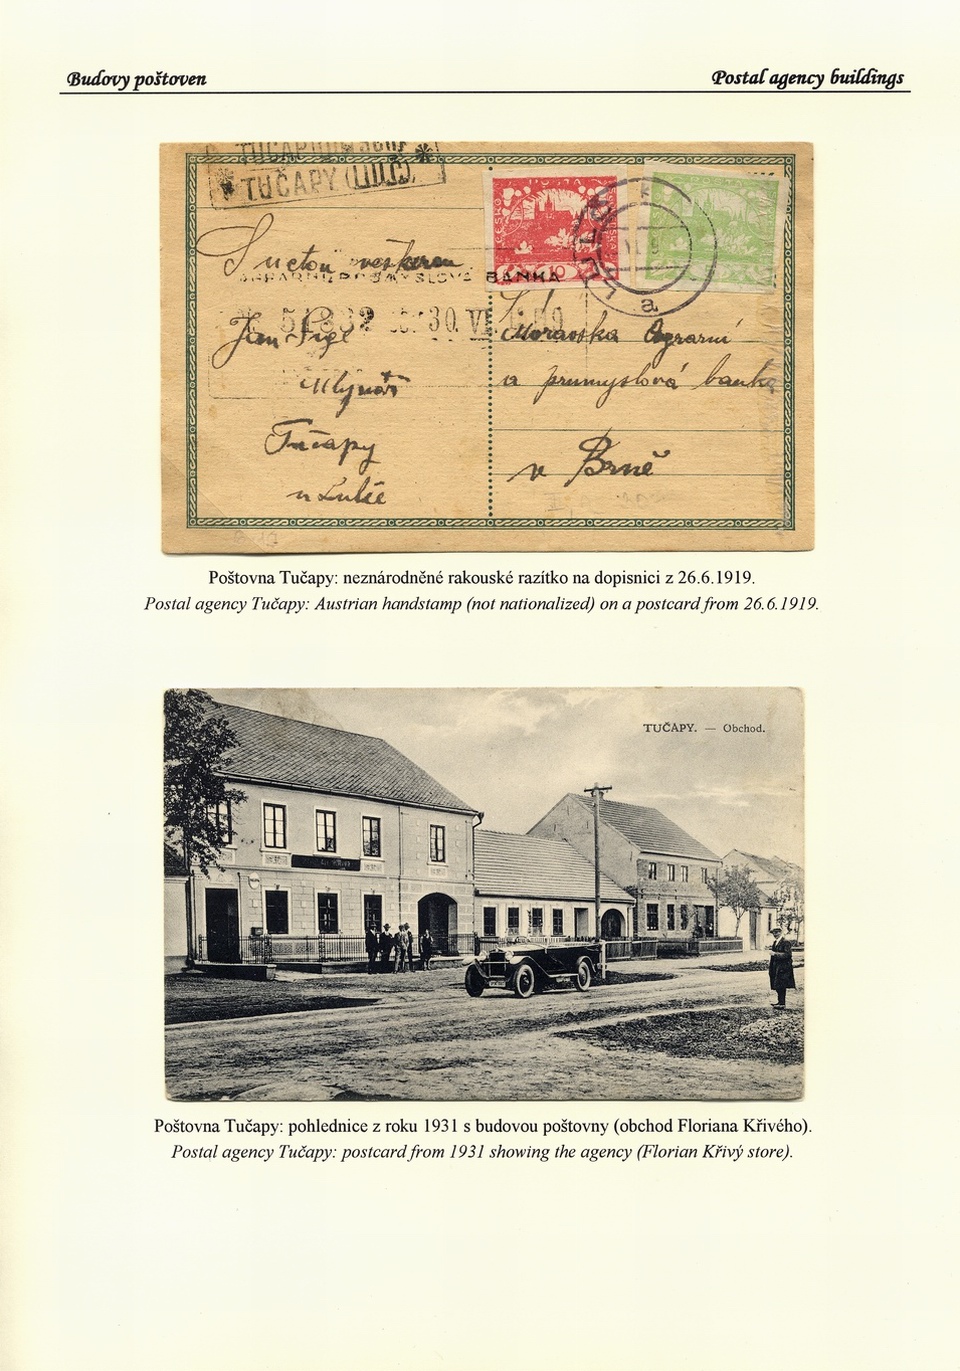 Budovy poštoven
Postal agency buildings
TUČAPY (LULČ)
BANKA
51332 30. VI.
Jan
Mlynář
Tučapy
u Lulče
Moravska Agrarní
a prumyslová banka
v Brně
a
Poštovna Tučapy: neznárodněné rakouské razítko na dopisnici z 26.6.1919.
Postal agency Tučapy: Austrian handstamp (not nationalized) on a postcard from 26.6.1919.
TUČAPY. — Obchod.
Poštovna Tučapy: pohlednice z roku 1931 s budovou poštovny (obchod Floriana Křivého).
Postal agency Tučapy: postcard from 1931 showing the agency (Florian Křivý store).